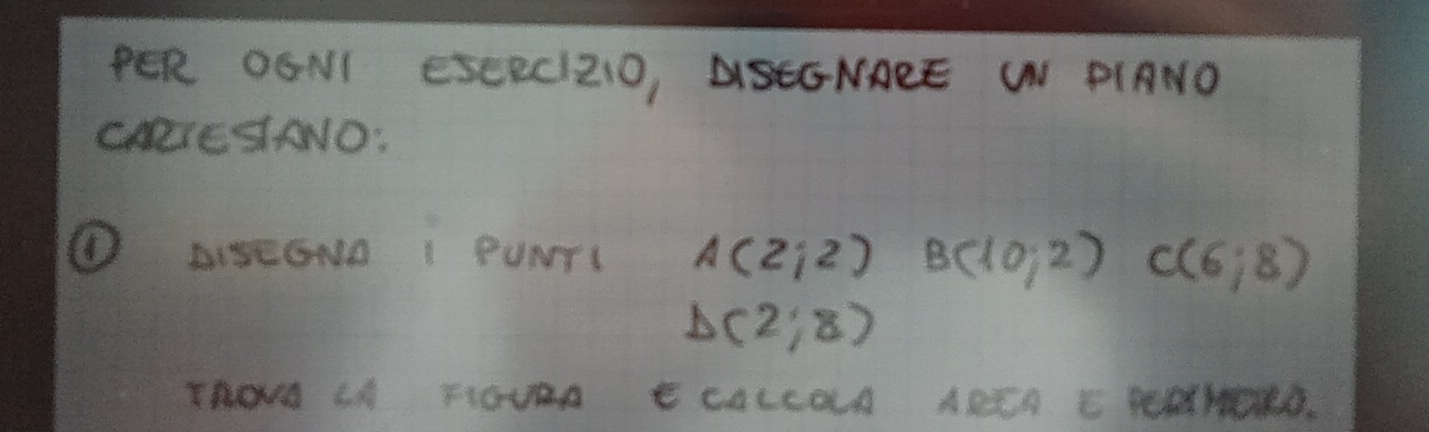 PER OGNI ESERCIZIO, DISEGNARE UN PIANO
CARTESIANO:
① DISEGNA i PUNTI A(2;2) B(10;2) C(6;8)
D(2;8)
TROVA LA FIGURA E CALCOLA AREA E PERIMETRO.